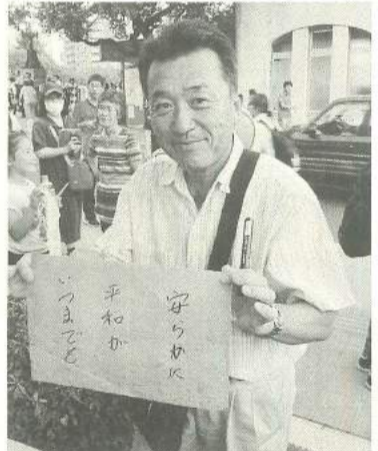 安らかに
平和が
いつまでも